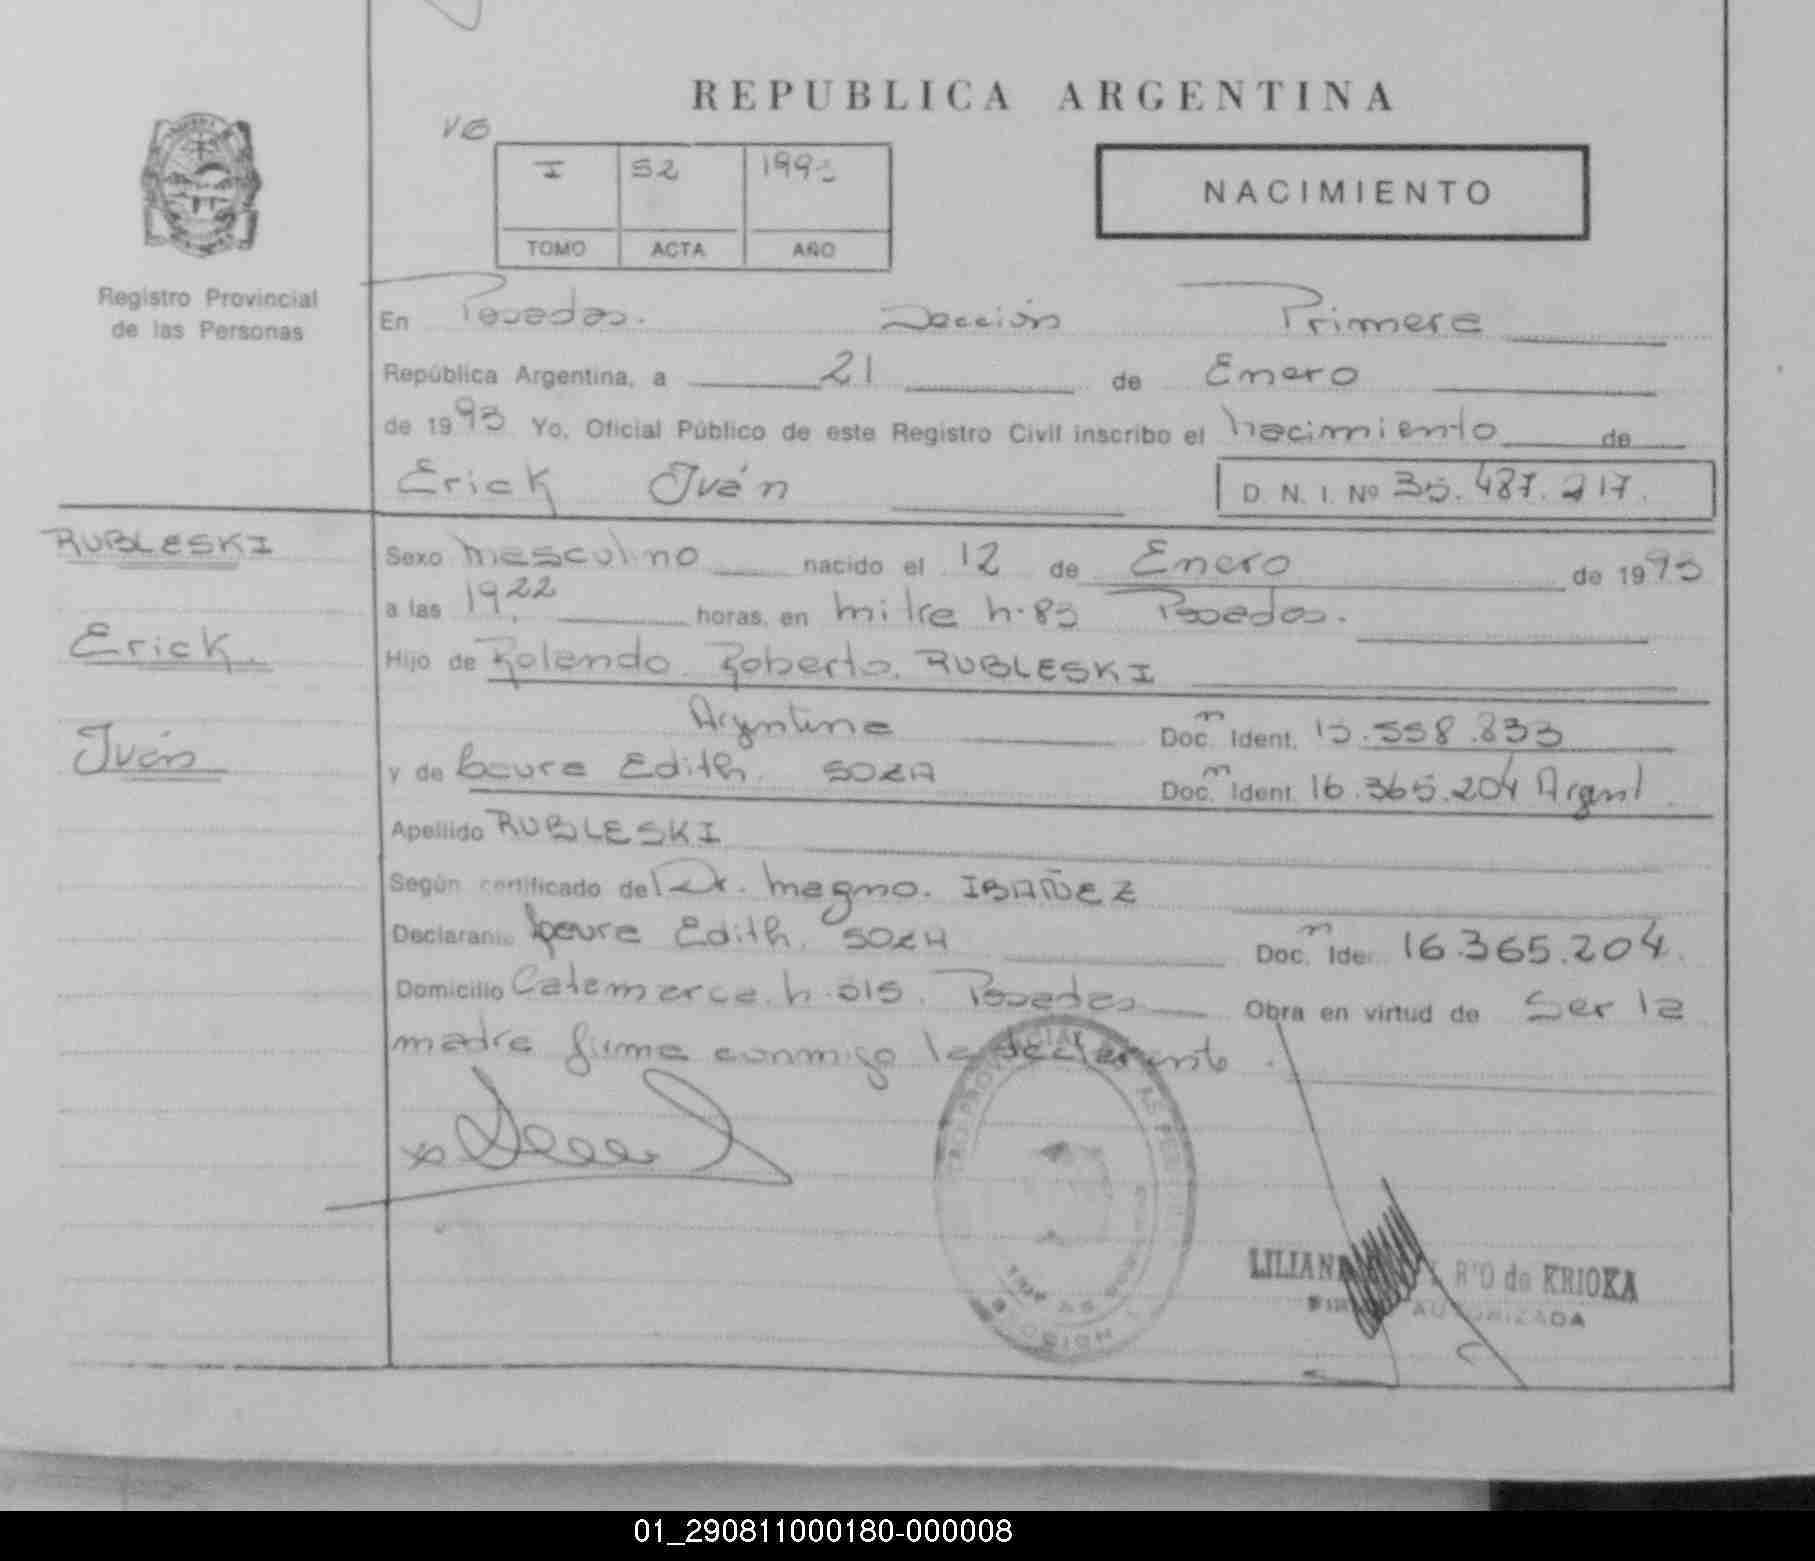 REPUBLICA ARGENTINA
VG
I 52 1993
TOMO ACTA AÑO
NACIMIENTO
Registro Provincial
de las Personas
En Posadas. Sección Primera
República Argentina, a 21 de Enero
de 1993 Yo, Oficial Público de este Registro Civil inscribo el nacimiento de
Erick Iván D. N. I. Nº 35.487.217.
RUBLESKI
Erick.
Iván
Sexo masculino nacido el 12 de Enero de 1993
a las 19,22 horas, en mitre n.83 Posadas.
Hijo de Rolando Roberto RUBLESKI
Argentina Doc. Ident. 13.558.833
y de Laura Edith SOZA Doc. Ident. 16.365.204 Argent
Apellido RUBLESKI
Según certificado del Dr. Magno. IBAÑEZ
Declarante Laura Edith. SOZA Doc. Iden. 16.365.204.
Domicilio Catamarca n. 515. Posadas Obra en virtud de Ser la
madre firma conmigo la declarante.
LILIANA R'O de KRIOKA
AUTORIZADA
01_290811000180-000008